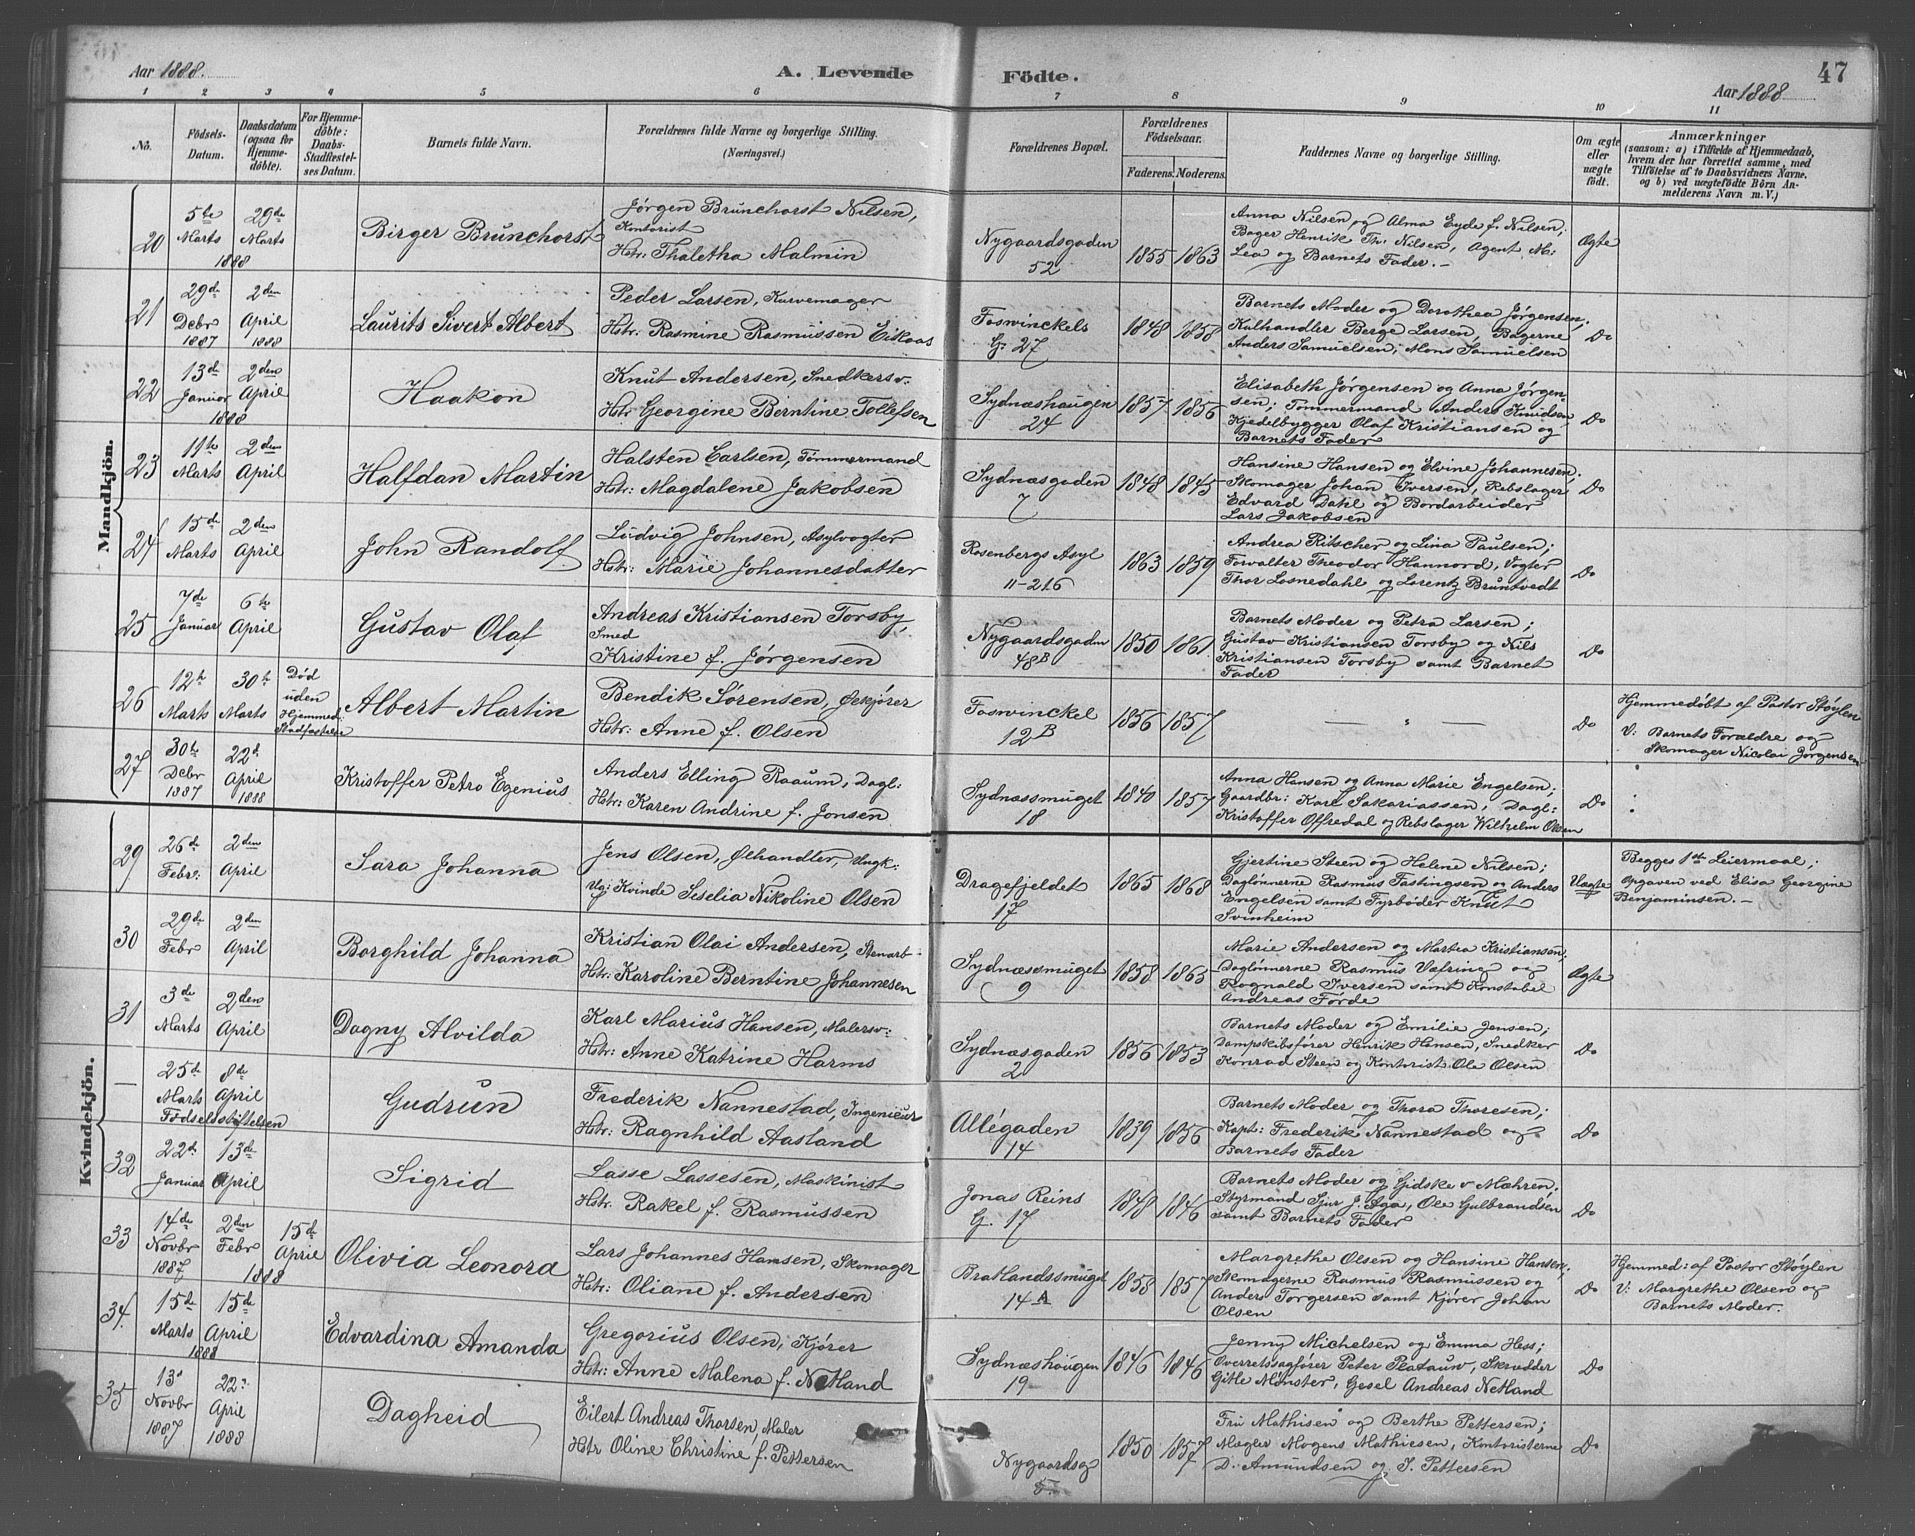 Aar 1888.
A. Levende
Födte.
Aar 1888
47
1 2 3 4 5 6 7 8 9 10 11
No.
Födsels-Datum.
Daabsdatum (ogsaa for Hjemme-döbte).
For Hjemme-döbte: Daabs-Stadfæstel-ses Datum.
Barnets fulde Navn.
Forældrenes fulde Navne og borgerlige Stilling. (Næringsvei.)
Forældrenes Bopæl.
Forældrenes Födselsaar.
Faderens. Moderens.
Faddernes Navne og borgerlige Stilling.
Om ægte eller uægte födt.
Anmærkninger
(saasom: a) i Tilfælde af Hjemmedaab, hvem der har forrettet samme, med Tilföielse af to Daabsvidners Navne, og b) ved uægtefödte Börn An-melderens Navn m. V.)
Mandkjön.
20
5te Marts 1888
29de Marts
Birger Brunchorst
Jørgen Brunchorst Nilsen,
Kontorist
Hstr: Thaletha Malmin
Nygaardsgaden
52
1855 1863
Anna Nilsen og Alma Eyde f. Nilsen;
Bager Henrik Th. Nilsen, Agent M.
Lea og Barnets Fader. –
Ægte
21
29de Debr 1887
2den April 1888
Laurits Sivert Albert
Peder Larsen, Kurvemager
Hstr: Rasmine Rasmussen Eikaas
Foswinckels
G: 27
1848 1858
Barnets Moder og Dorothea Jørgensen;
Kulhandler Berge Larsen, Bagerne
Anders Samuelsen, Mons Samuelsen
Do
22
13de Januar 1888
2den April
Haakon
Knut Andersen, Snedkersv.
Hstr Georgine Berntine Tollefsen
Sydnæshaugen
24
1857 1856
Elisabeth Jørgensen og Anna Jørgen-
sen; Tømmermand Anders Knudsen,
Kjedelbygger Olaf Kristiansen og
Barnets Fader
Do
23
11te Marts
2den April
Halfdan Martin
Halsten Carlsen, Tømmermand
Hstr: Magdalene Jakobsen
Sydnæsgaden
7
1848 1845
Hansine Hansen og Elvine Johannesen;
Skomager Johan Iversen, Rebslager
Edvard Dahl og Bordarbeider
Lars Jakobsen
Do
24
15de Marts
2den April
John Randolf
Ludvig Johnsen, Asylvogter
Hstr: Marie Johannesdatter
Rosenbergs Asyl
11–216
1863 1859
Andrea Ritscher og Lina Paulsen;
Forvalter Theodor Hannord, Vogter
Thor Losnedahl og Lorentz Bruntvedt
Do
25
7de Januar
6te April
Gustav Olaf
Andreas Kristiansen Torsby,
Smed
Kristine f. Jørgensen
Nygaardsgaden
48B
1850 1861
Barnets Moder og Petra Larsen;
Gustav Kristiansen Torsby og Nils
Kristiansen Torsby samt Barnet
Fader
Do
26
12te Marts
30te Marts
Død uden Hjemmed. Stadfæstelse
Albert Martin
Bendik Sørensen, Øekjører
Hstr: Anne f. Olsen
Foswinckel
12B
1856 1857
— " —
Do
Hjemmedøbt af Pastor Støylen
V: Barnets Forældre og
Skomager Nicolai Jørgensen
27
30te Debr 1887
22d April 1888
Kristoffer Petro Egenius
Anders Elling Raaum, Dagl:
Hstr: Karen Andrine f. Jonsen
Sydnæssmuget
18
1840 1857
Anna Hansen og Anna Marie Engelsen;
Gaardbr: Karl Sakariassen, Dagl:
Kristoffer Offredal og Rebslager Wilhelm Olsen
Do
Kvindekjön.
29
26de Febr:
2den April
Sara Johanna
Jens Olsen, Ølhandler, Ungk:
Ug: Kvinde Seselia Nikoline Olsen
Dragefjeldet
17
1865 1868
Gjertine Steen og Helene Nilsen;
Daglønnerne Rasmus Tastingsen og Anders
Engelsen samt Fyrbøder Knut
Svinheim
Uægte
Begges 1ste Leiermaal;
Opgaven ved Elisa Georgine
Benjaminsen. –
30
29de Febr
2den April
Borghild Johanna
Kristian Olai Andersen, Stenarb-
Hstr: Karoline Berntine Johannesen
Sydnæssmuget
9
1858 1863
Marie Andersen og Martea Kristiansen;
Daglønnerne Rasmus Vefring og
Rognald Iversen samt Konstabel
Andreas Førde
Ægte
31
3de Marts
2den April
Dagny Alvilda
Karl Marius Hansen, Malersv:
Hstr: Anne Katrine Harms
Sydnæsgaden
2
1856 1853
Barnets Moder og Emilie Jensen;
Dampskibsfører Henrik Hansen, Snedker
Konrad Steen og Kontorist Ole Olsen
Do
—
25d Marts
8de April
Fødselsstiftelsen
Gudrun
Frederik Nannestad, Ingeniør
Hstr: Ragnhild Aasland
Allégaden
14
1839 1856
Barnets Moder og Thora Thoresen;
Kapt: Frederik Nannestad og
Barnets Fader
Do
32
22d Januar
13de April
Sigrid
Lasse Lassesen, Maskinist
Hstr. Rakel f. Rasmussen
Jonas Reins
G. 17
1848 1846
Barnets Moder og Gidske v Mæhren,
Styrmand Sjur J. Aga, Ole Gulbrandsen
samt Barnets Fader
Do
33
14de Novbr 1887
2den Febr 1888
15d April
Olivia Leonora
Lars Johannes Hansen, Skomager
Hstr: Oliane f. Andersen
Bratlandssmuget
14A
1858 1857
Margrethe Olsen og Hansine Hansen;
Skomagerne Rasmus Rasmussen og
Anders Torgersen samt Kjører Johan
Olsen
Do
Hjemmed: af Pastor Støylen
V: Margrethe Olsen og
Barnets Moder.
34
15de Marts 1888
15de April
Edvardina Amanda
Gregorius Olsen, Kjører
Hstr: Anne Malena f. Netland
Sydnæshaugen
19
1846 1846
Jenny Michelsen og Emma Hess;
Overretssagfører Peter Platauw, Skrædder
Gitle Mønster, Gesel Andreas Netland
Do
35
13de Novbr 1887
22de April 1888
Dagheid
Eilert Andreas Thorsen, Maler
Hstr Oline Christine f. Pettersen
Nygaardsg
1850 1857
Fru Mathisen og Berthe Pettersen;
Mægler Mogens Mathiesen, Kontoristerne
D. Amundsen og J. Pettersen
Do